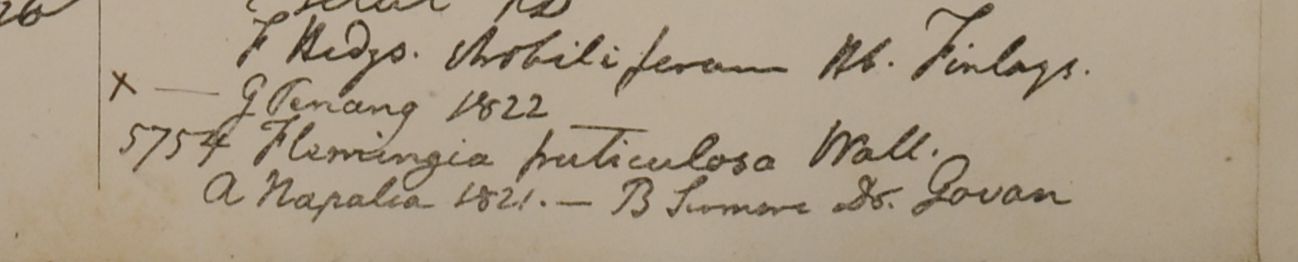 F Hedys. strobiliferum Hb. Finlays.
x — G Penang 1822
5754 Flemingia fruticulosa Wall.
A Napalia 1821. — B Sirmore Dr. Govan